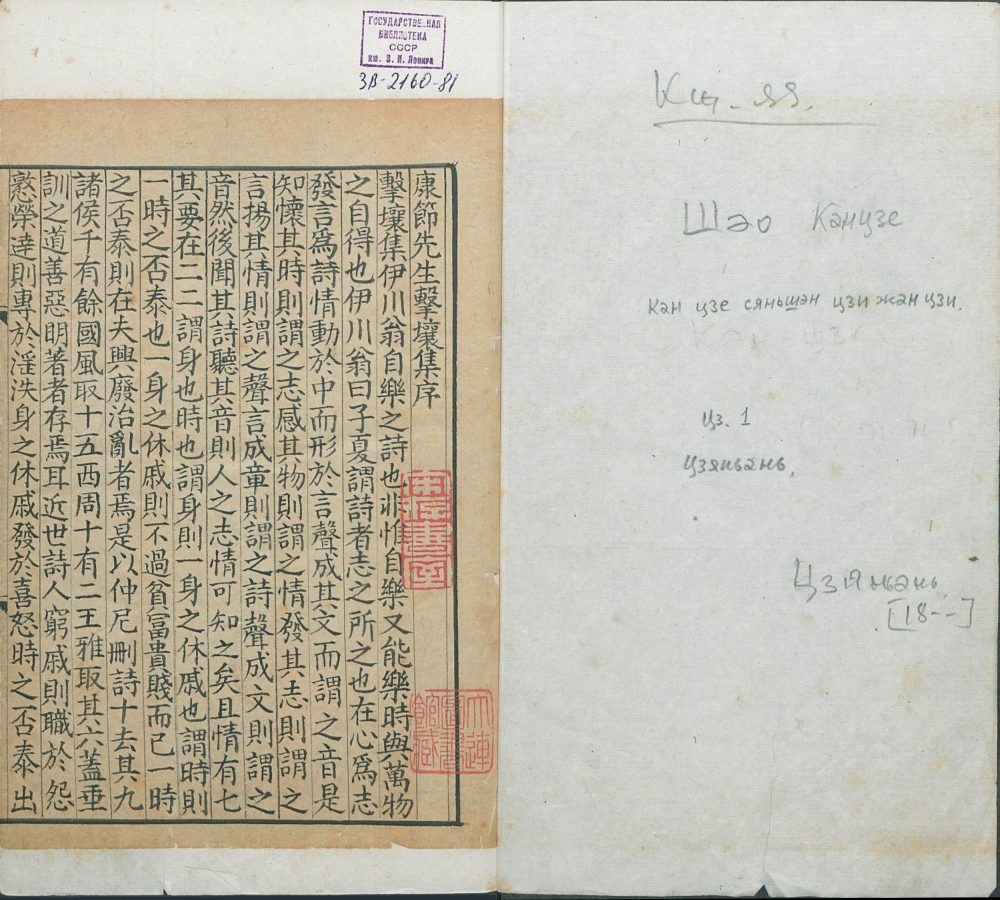 ГОСУДАРСТВЕННАЯ
БИБЛИОТЕКА
СССР
им. В. И. Ленина
ЗВ-2160-81
康節先生擊壤集序
擊壤集伊川翁自樂之詩也非惟自樂又能樂時與萬物
之自得也伊川翁曰子夏謂詩者志之所之也在心爲志
發言爲詩情動於中而形於言聲成其文而謂之音是
知懷其時則謂之志感其物則謂之情發其志則謂之
言揚其情則謂之聲言成章則謂之詩聲成文則謂之
音然後聞其詩聽其音則人之志情可知之矣且情有七
其要在二二謂身也時也謂身則一身之休戚也謂時則
一時之否泰也一身之休戚則不過貧富貴賤而已一時
之否泰則在夫興廢治亂者焉是以仲尼刪詩十去其九
諸侯千有餘國風取十五西周十有二王雅取其六蓋垂
訓之道善惡明著者存焉耳近世詩人窮戚則職於怨
憝榮達則專於淫泆身之休戚發於喜怒時之否泰出
大連
圖書
館藏
Кит. яз.
Шэо Канцзе
кан цзе сяньшэн цзи жан цзи.
цз. 1
Цзяньань.
Цзяньань,
[18--]